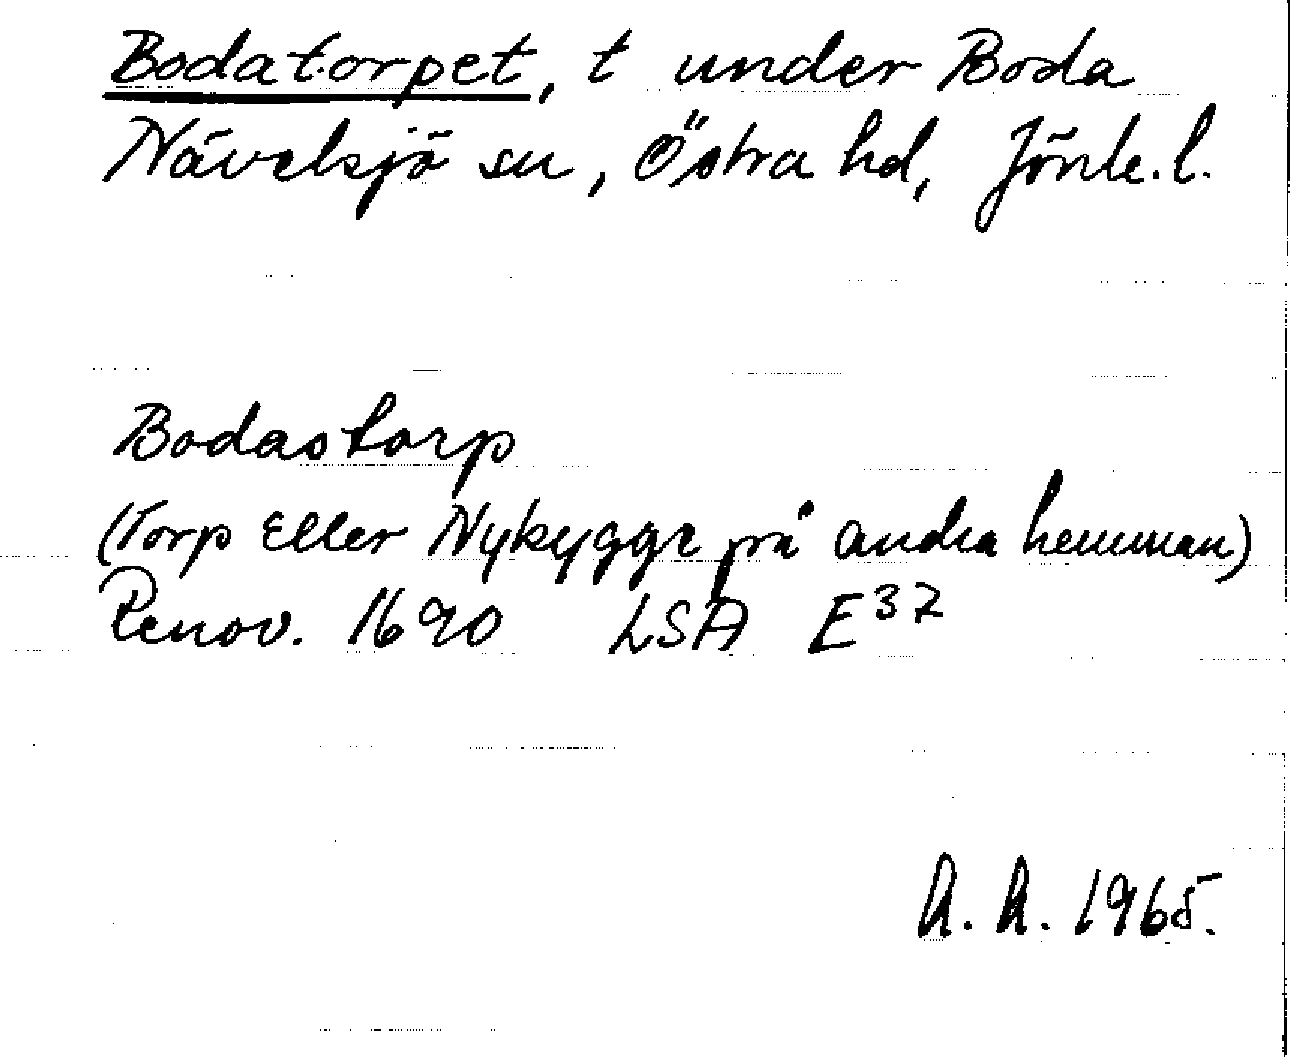 Bodatorpet, t under Boda
Nävelsjö sn, Östra hd, Jönk. l.
Bodastorp
(Torp Eller Nybygge på andra hemman)
Renov. 1690 LSA E37
A. A. 1965.